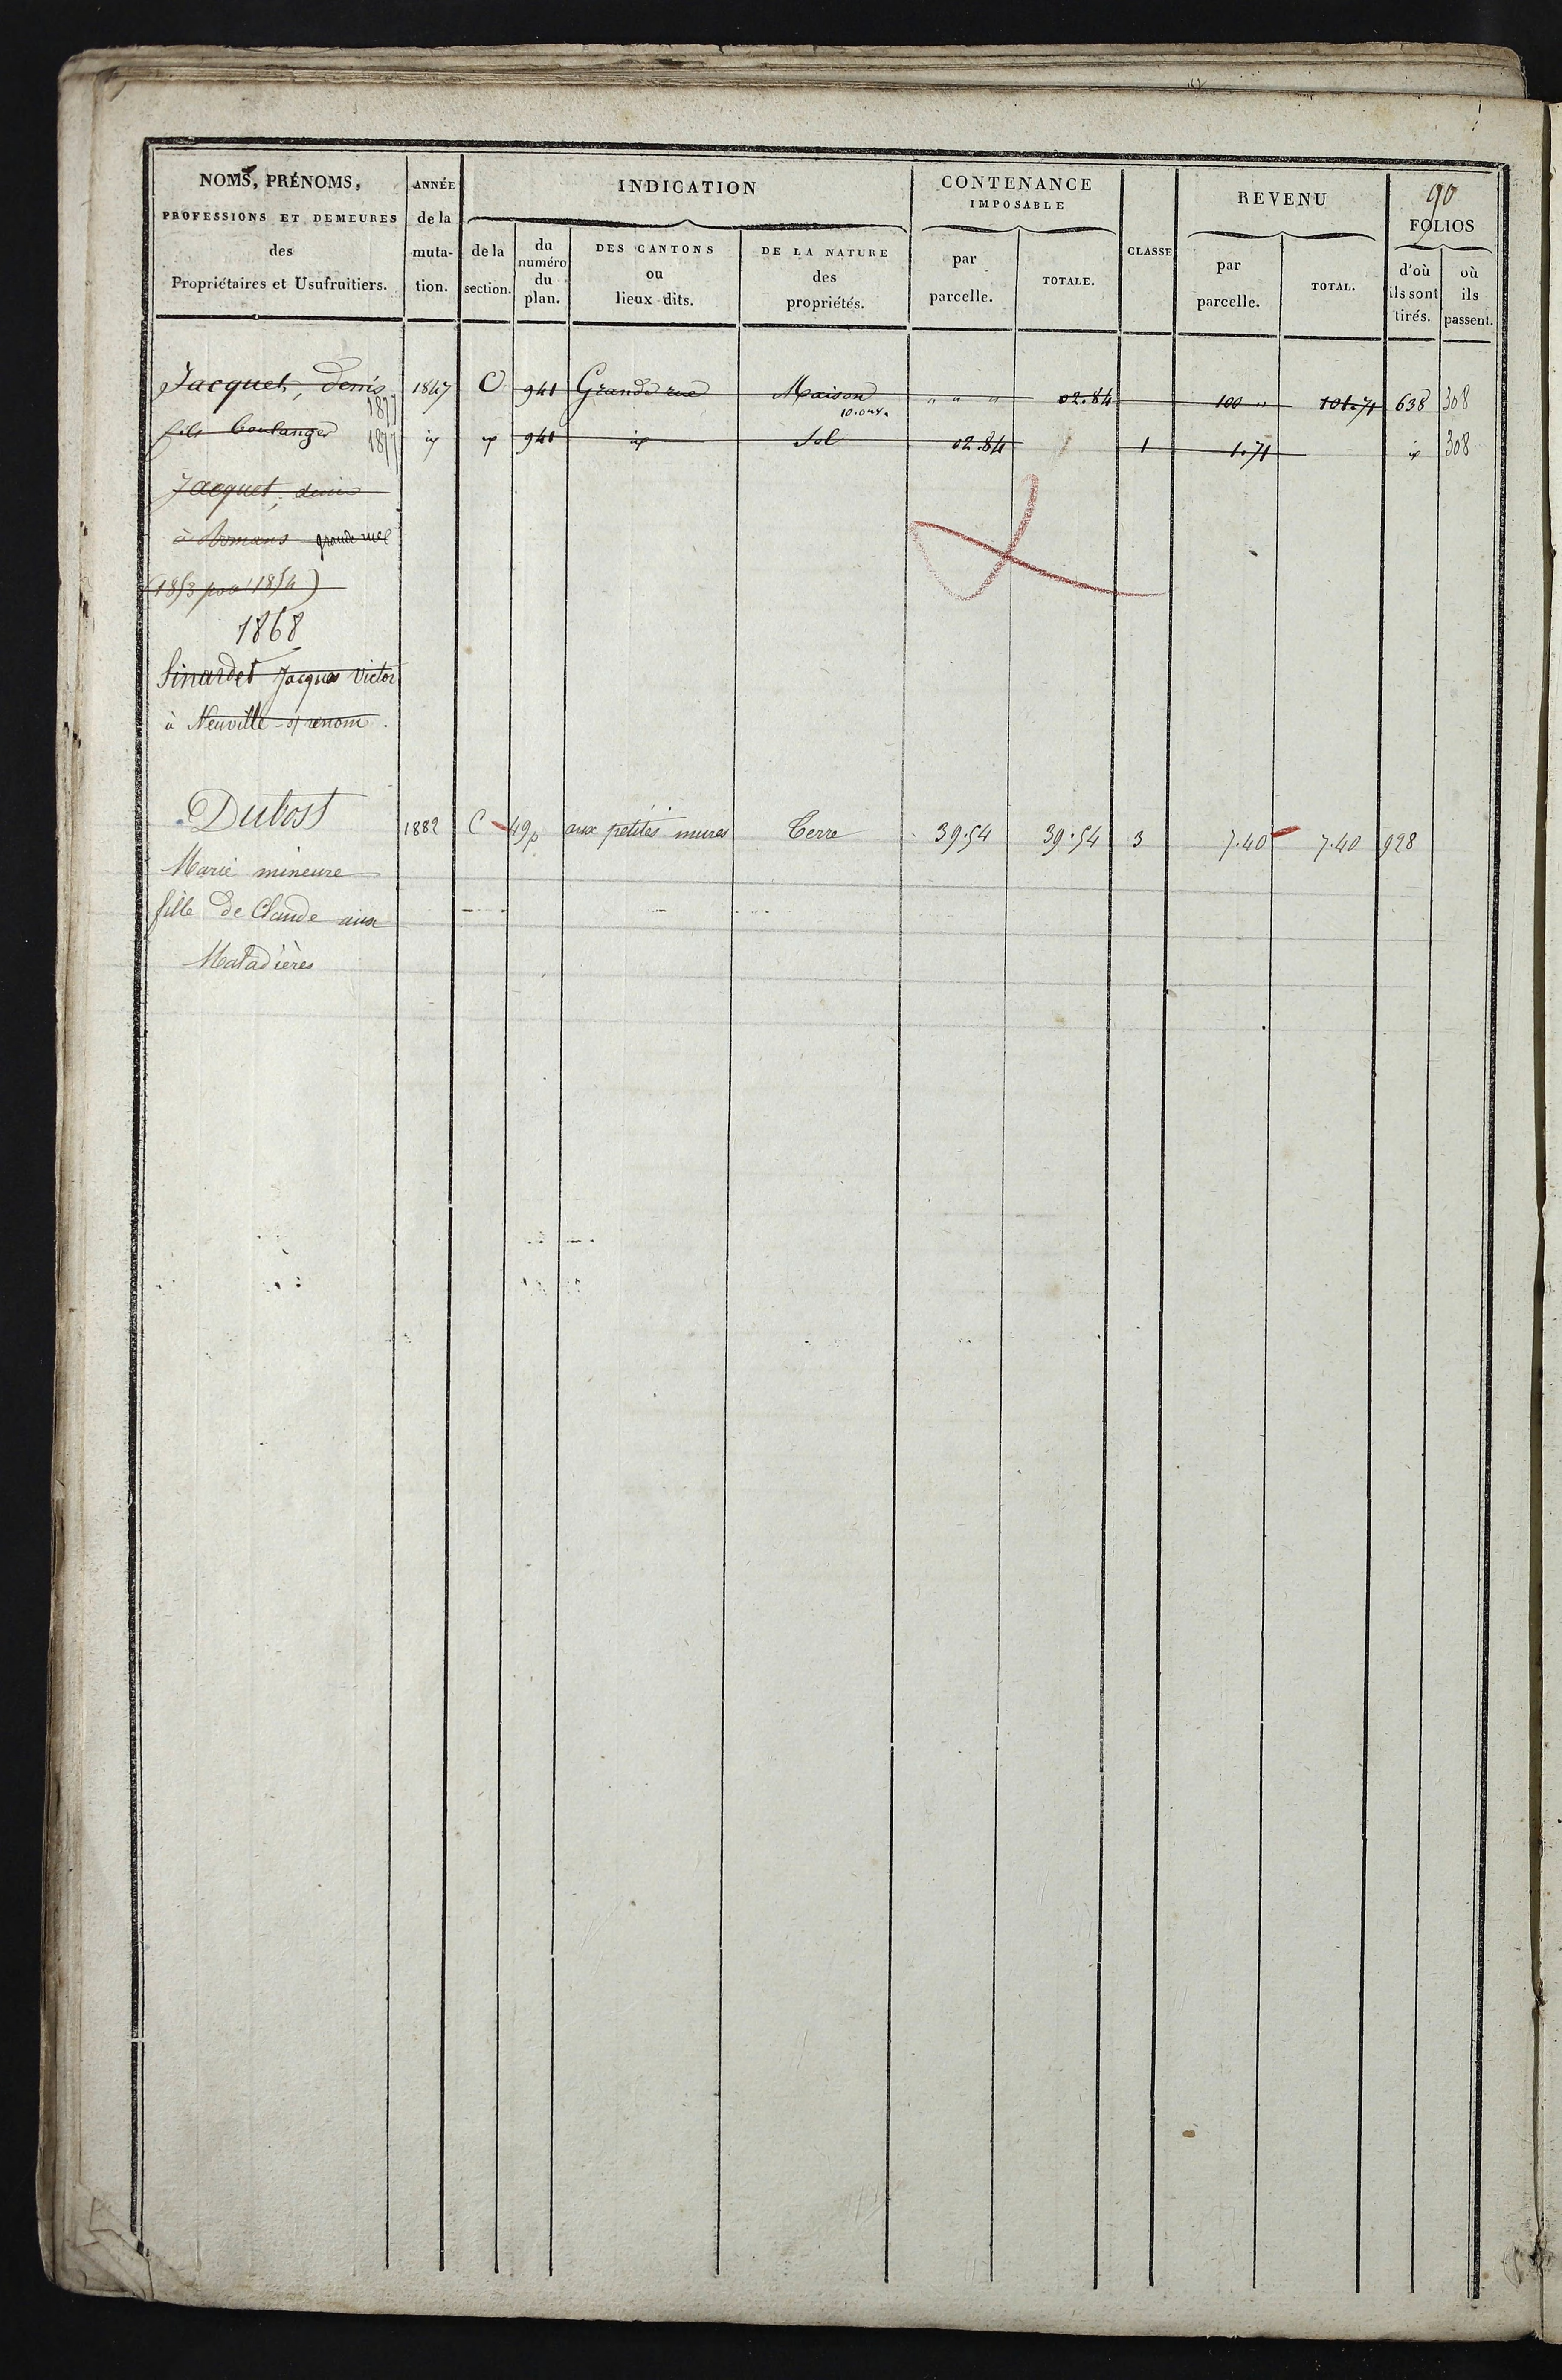 NOMS, PRÉNOMS,
PROFESSIONS ET DEMEURES
des
Propriétaires et Usufruitiers.
ANNÉE
de la
muta-
tion.
INDICATION
de la
section.
du
numéro
du
plan.
DES CANTONS
ou
lieux dits.
DE LA NATURE
des
propriétés.
CONTENANCE
IMPOSABLE
par
parcelle.
TOTALE.
CLASSE
REVENU
par
parcelle.
TOTAL.
90
FOLIOS
d'où
ils sont
tirés.
où
ils
passent.
Jacquet, Denis 1877 1847 C 941 Grande rue Maison " " " 02.84 100 " 101.71 638 308
10. ouv.
fils boulanger 1877 id id 941 id Sol 02.84 1 1.71 id 308
Jacquet, denis
à Romans grande rue
(1853 pour 1854)
1868
Sinardet Jacques Victor
à Neuville s/ renom.
Dubost 1882 C 49p aux petites mures Terre 39.54 39.54 3 7.40 7.40 928
Marie mineure
fille de Claude aux
Maladières